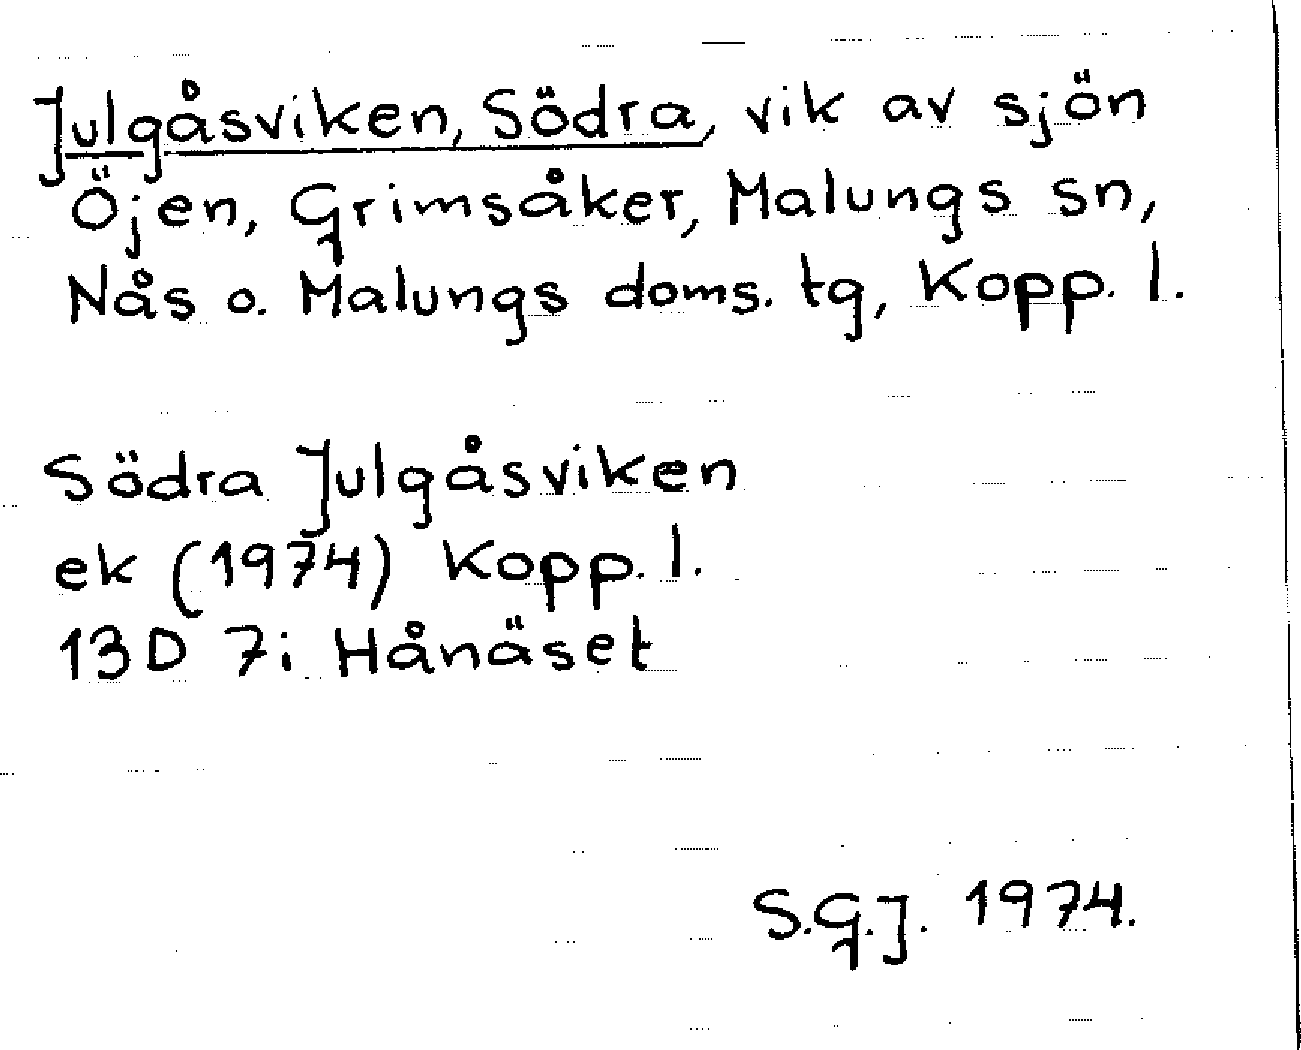 Julgåsviken, Södra, vik av sjön
Öjen, Grimsåker, Malungs sn,
Nås o. Malungs doms. tg, Kopp. l.
Södra Julgåsviken
ek (1974) Kopp. l.
13D 7i Hånäset
S.G.J. 1974.